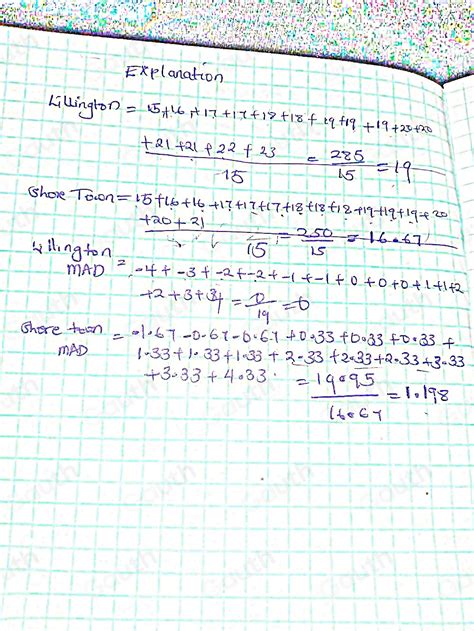 Explanation
Lillington = 15+16+17+17+18+18+19+19+19+20+20
+21+21+22+23 / 15 = 285/15 = 19
Shore Town = 15+16+16+17+17+17+18+18+18+19+19+19+20
+20+21 / 15 = 250/15 = 16.67
Lillington MAD = -4+-3+-2+-2+-1+-1+0+0+0+1+1+2
+2+3+4 = 0/19 = 0
Shore town MAD = -1.67-0.67-0.67+0.33+0.33+0.33+
1.33+1.33+1.33+2.33+2.33+2.33+3.33
+3.33+4.33 = 19.95/16.67 = 1.198